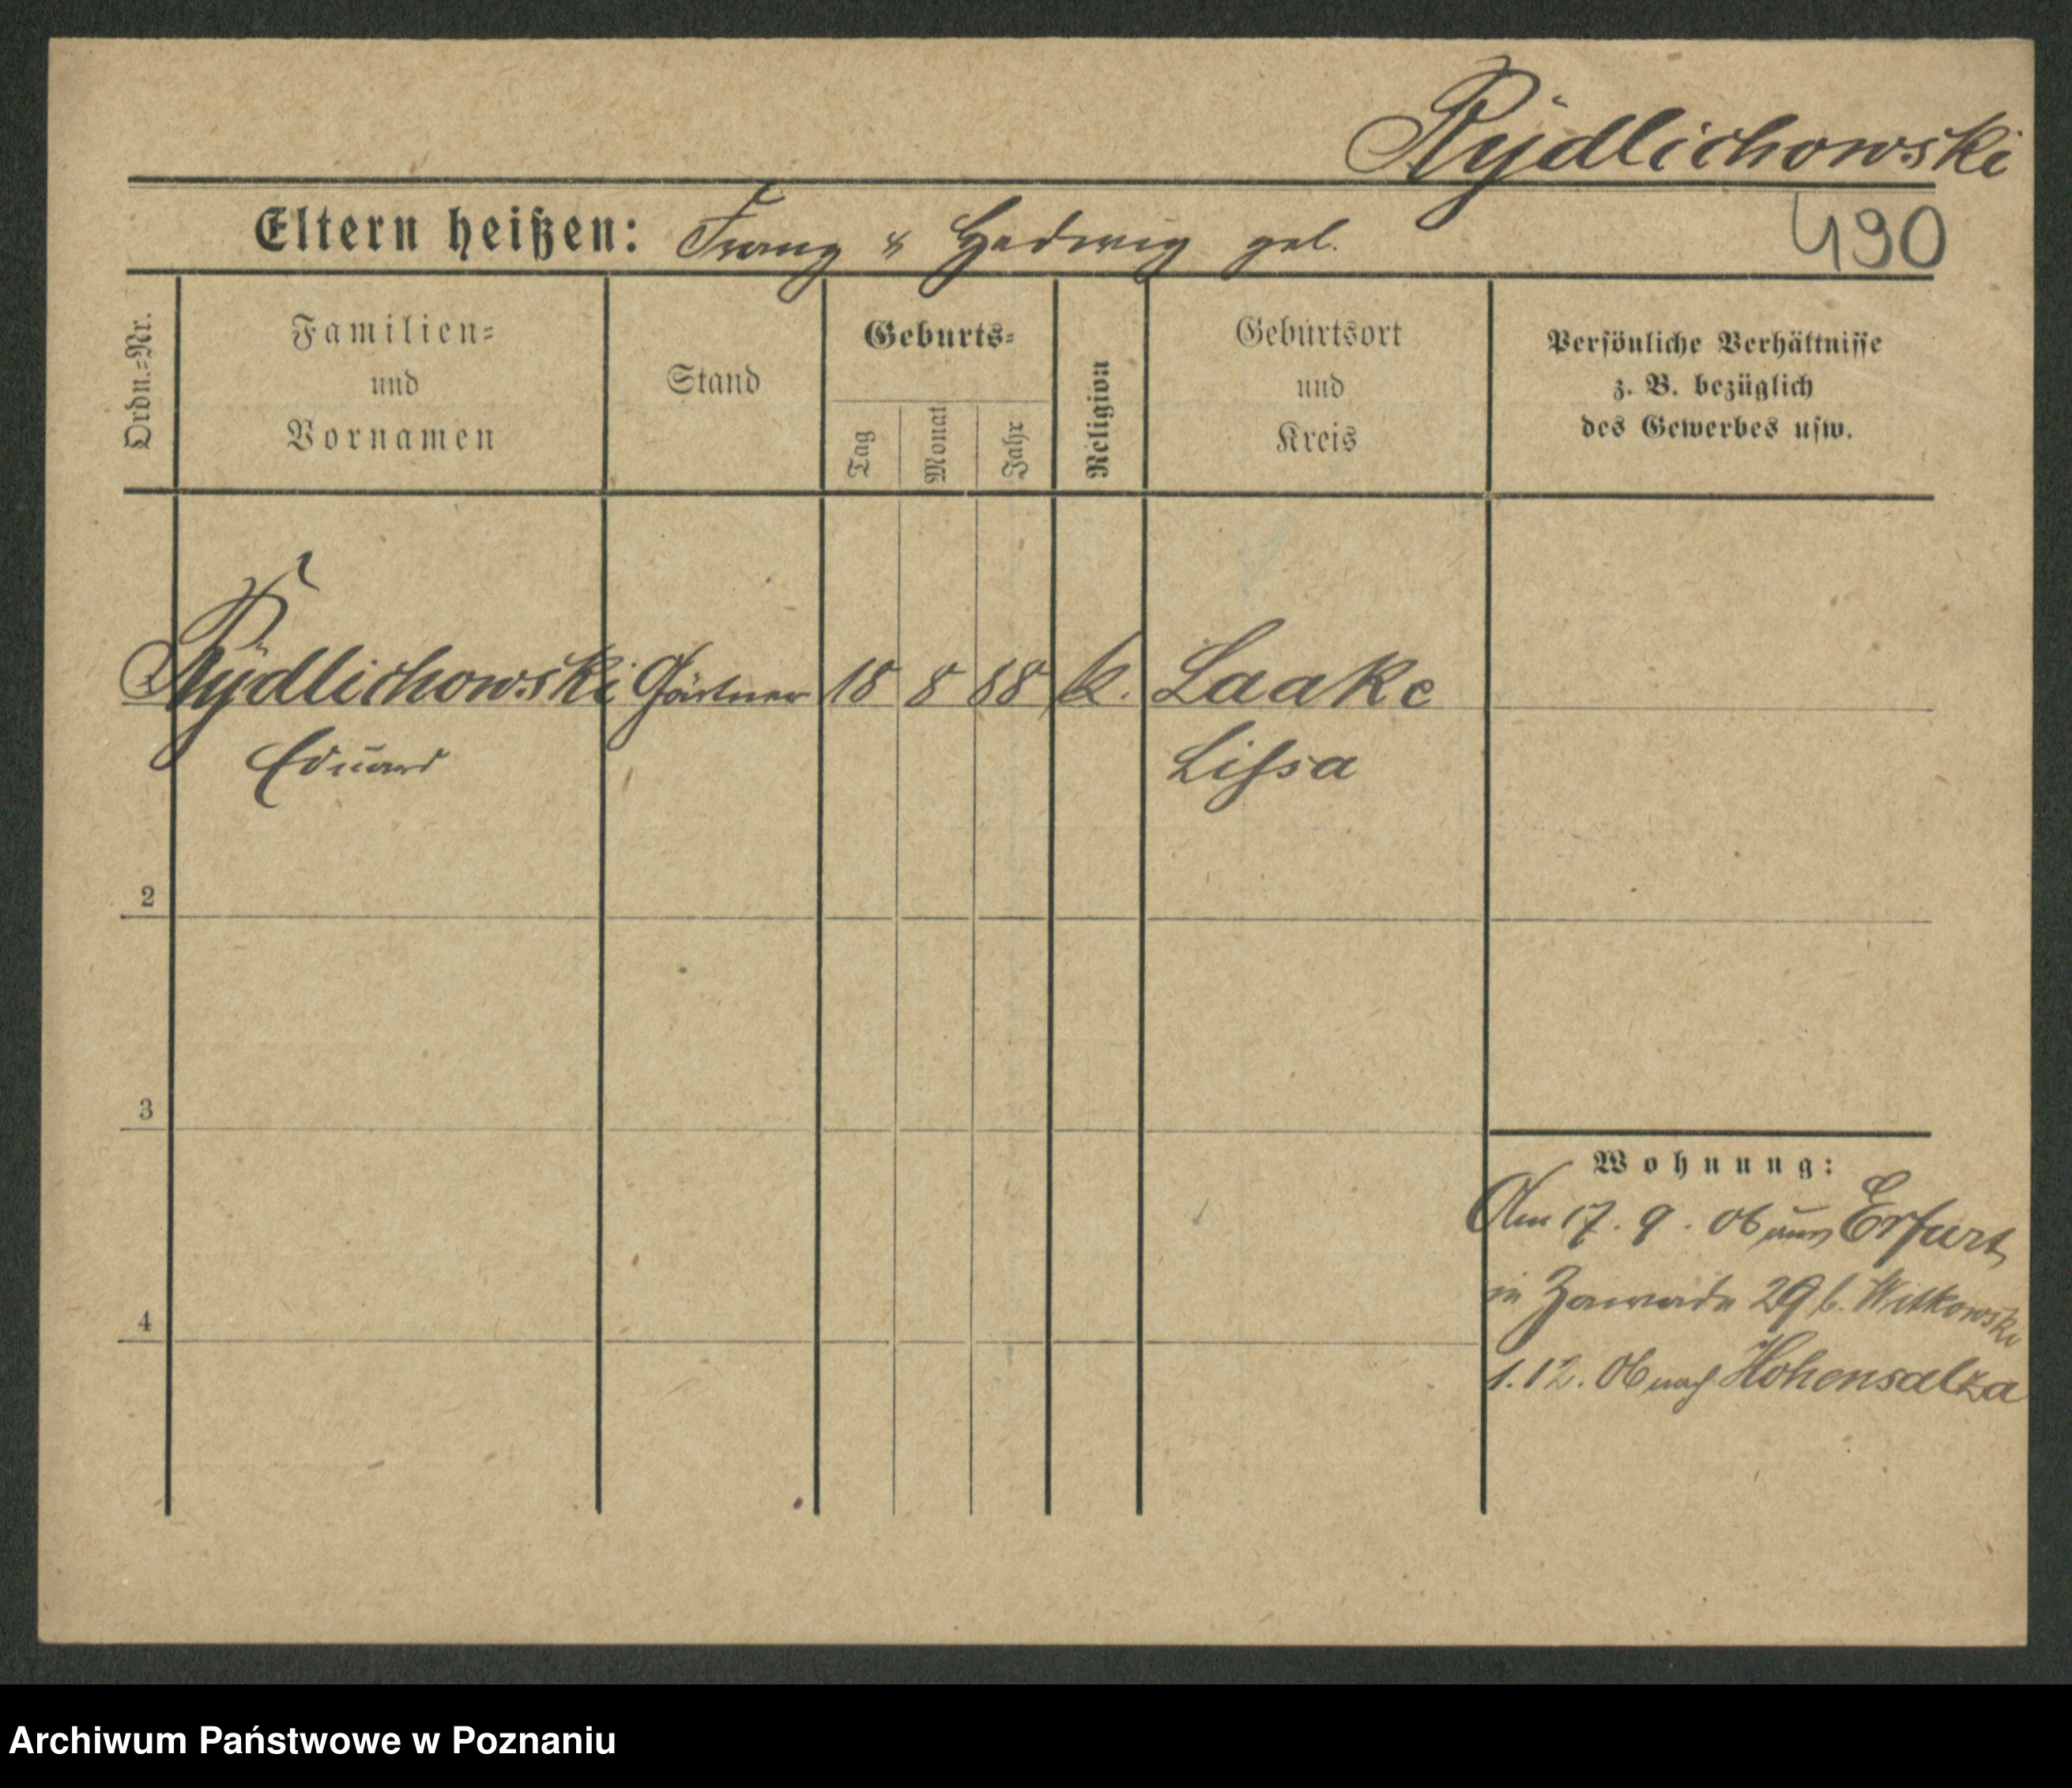 Rÿdlichowski
Eltern heißen: Franz & Hedwig geb.
490
Ordn.=Nr.
Familien=
und
Vornamen
Stand
Geburts=
Tag
Monat
Jahr
Religion
Geburtsort
und
Kreis
Persönliche Verhältnisse
z. B. bezüglich
des Gewerbes usw.
Rÿdlichowski Gärtner 18 8 88 k. Laake
Eduard Lissa
2
3
Wohnung:
Am 17. 9. 06 aus Erfurt
in Zawade 29 b. Witkowski
4
1. 12. 06 nach Hohensalza
Archiwum Państwowe w Poznaniu